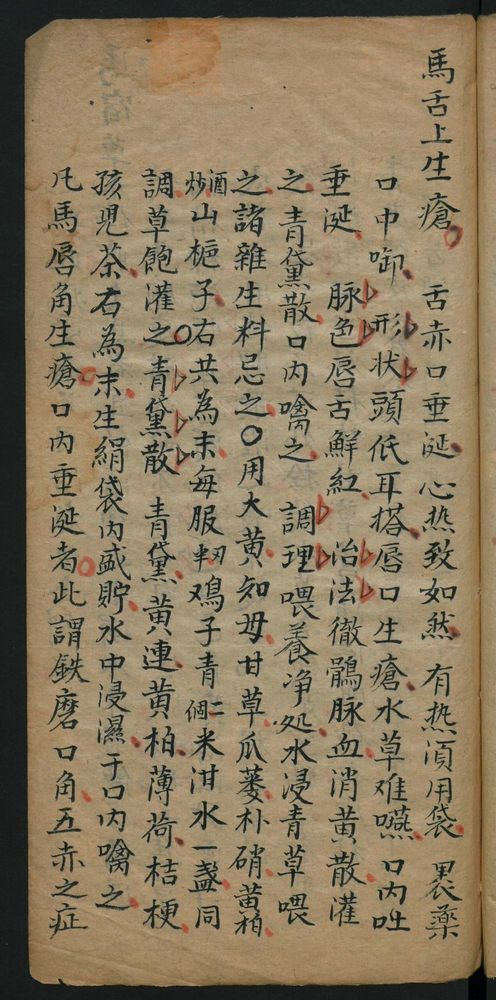 馬舌上生瘡 舌赤口垂涎 心热致如然 有热湏用袋 褁藥
口中啣 形状 頭低耳搭唇口生瘡水草难嚥口内吐
垂涎 脉色唇舌鮮紅 治法徹鶻脉血消黄散灌
之青黛散口内噙之 調理喂養净処水浸青草喂
之諸雜生料忌之〇用大黄知母甘草瓜蒌朴硝黄柏
酒炒山栀子右共為末每服半刃鸡子青二個米泔水一盏同
調草飽灌之〇青黛散 青黛黄連黄柏薄荷桔梗
孩児茶右為末生絹袋内盛貯水中浸濕于口内噙之
凡馬唇角生瘡口内垂涎者此謂鉄磨口角五赤之症